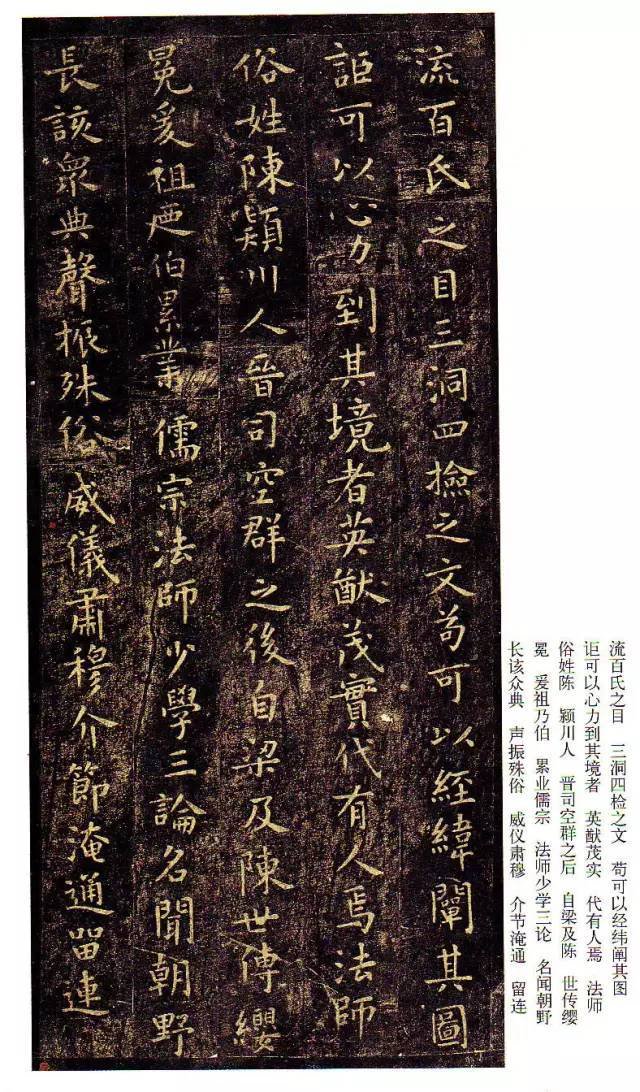 流百氏之目三洞四撿之文苟可以經緯闡其圖
詎可以心力到其境者英猷茂實代有人焉法師
俗姓陳頴川人晉司空群之後自梁及陳世傳纓
冕爰祖迺伯累業儒宗法師少學三論名聞朝野
長該衆典聲振殊俗威儀肅穆介節淹通留連
流百氏之目 三洞四检之文 苟可以经纬阐其图
讵可以心力到其境者 英猷茂实 代有人焉 法师
俗姓陈 颍川人 晋司空群之后 自梁及陈 世传缨
冕 爰祖乃伯 累业儒宗 法师少学三论 名闻朝野
长该众典 声振殊俗 威仪肃穆 介节淹通 留连